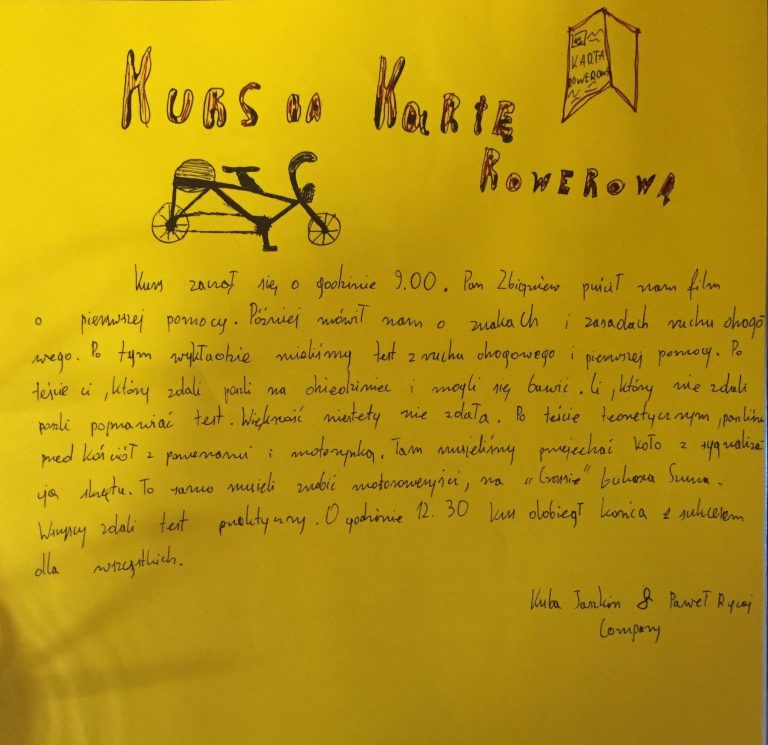 KURS NA KARTĘ
KARTA
ROWEROWA
ROWEROWĄ
Kurs zaczął się o godzinie 9.00. Pan Zbigniew puścił nam film
o pierwszej pomocy. Później mówił nam o znakach i zasadach ruchu drogo
wego. Po tym wykładzie mieliśmy test z ruchu drogowego i pierwszej pomocy. Po
teście ci, który zdali poszli na dziedziniec i mogli się bawić. Ci, który nie zdali
poszli poprawiać test. Większość niestety nie zdała. Po teście teoretycznym, poszliśmy
przed kościół z rowerami i motorynką. Tam musieliśmy przejechać koło z sygnaliza
cją skrętu. To samo musieli zrobić motorowerzyści, na "Crossie" Łukasza
Wszyscy zdali test praktyczny. O godzinie 12.30 kurs dobiegł końca z sukcesem
dla wszystkich.
Kuba & Paweł
Company